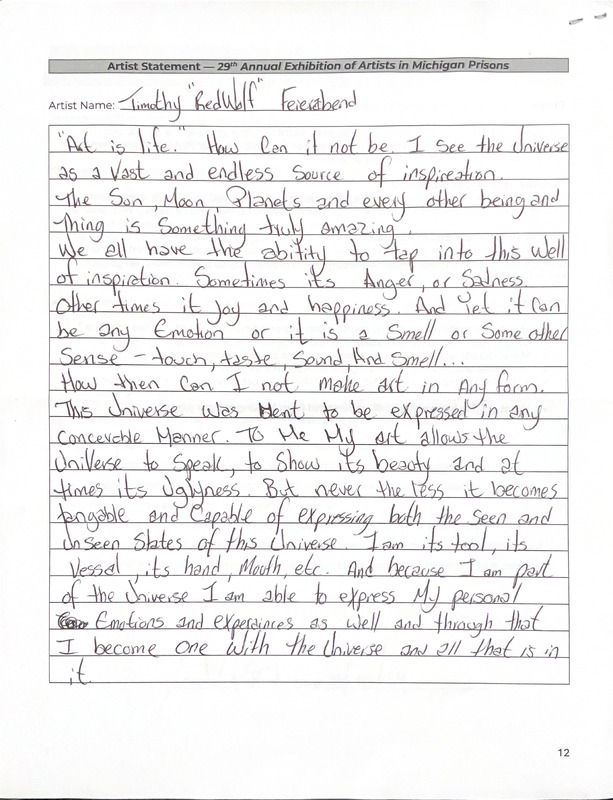 Artist Statement — 29th Annual Exhibition of Artists in Michigan Prisons
Artist Name: Timothy "RedWolf" Feierabend
"Art is life." How Can it not be. I See the Universe
as a Vast and endless Source of inspireation.
The Sun, Moon Planets and every other being and
Thing is Something truly amazing.
We all have the abitity to tap into this well
of inspiration. Sometimes its Anger, or Sadness
Other times it Joy and happiness. And Yet it Can
be any Emotion or it is a Smell or Some other
Sense - touch, taste, Sound, And Smell...
How then Can I not make art in Any form.
This Universe was Ment to be expressed in any
Concevable Manner. To Me My art allows the
Universe to Speak, to Show its beauty and at
times its Uglyness. But never the less it becomes
tangable and Capable of expressing both the Seen and
UnSeen States of this Universe. I am its tool, its
Vessal, its hand, Mouth, etc. And because I am part
of the Universe I am able to express My personal
Emotions and experainces as Well and through that
I become One With the Universe and all that is in
it
12